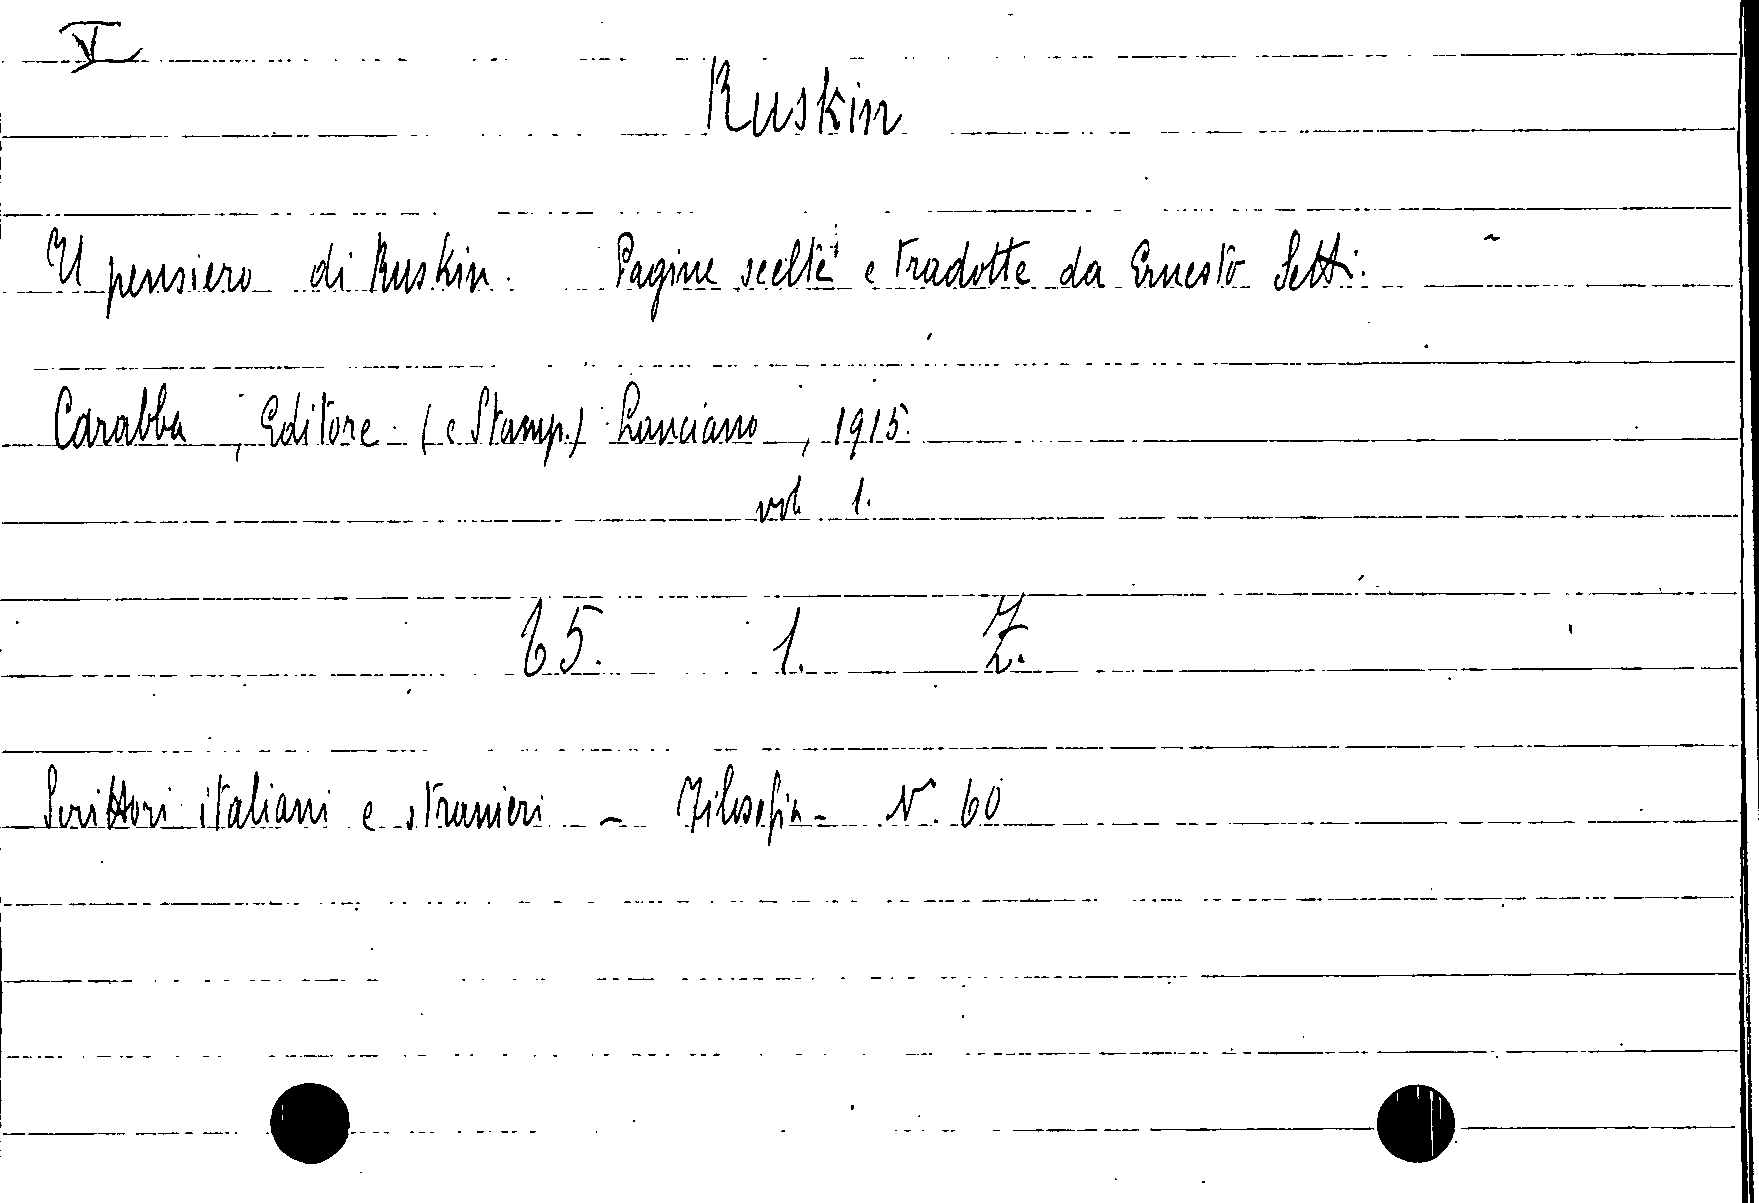 V
Ruskin
Il pensiero di Ruskin. Pagine scelte e tradotte da Ernesto Setti.
Carabba, Editore (e Stamp.) Lanciano, 1915.
vol. 1.
65. 1. 
Scrittori italiani e stranieri - Filosofia - N. 60